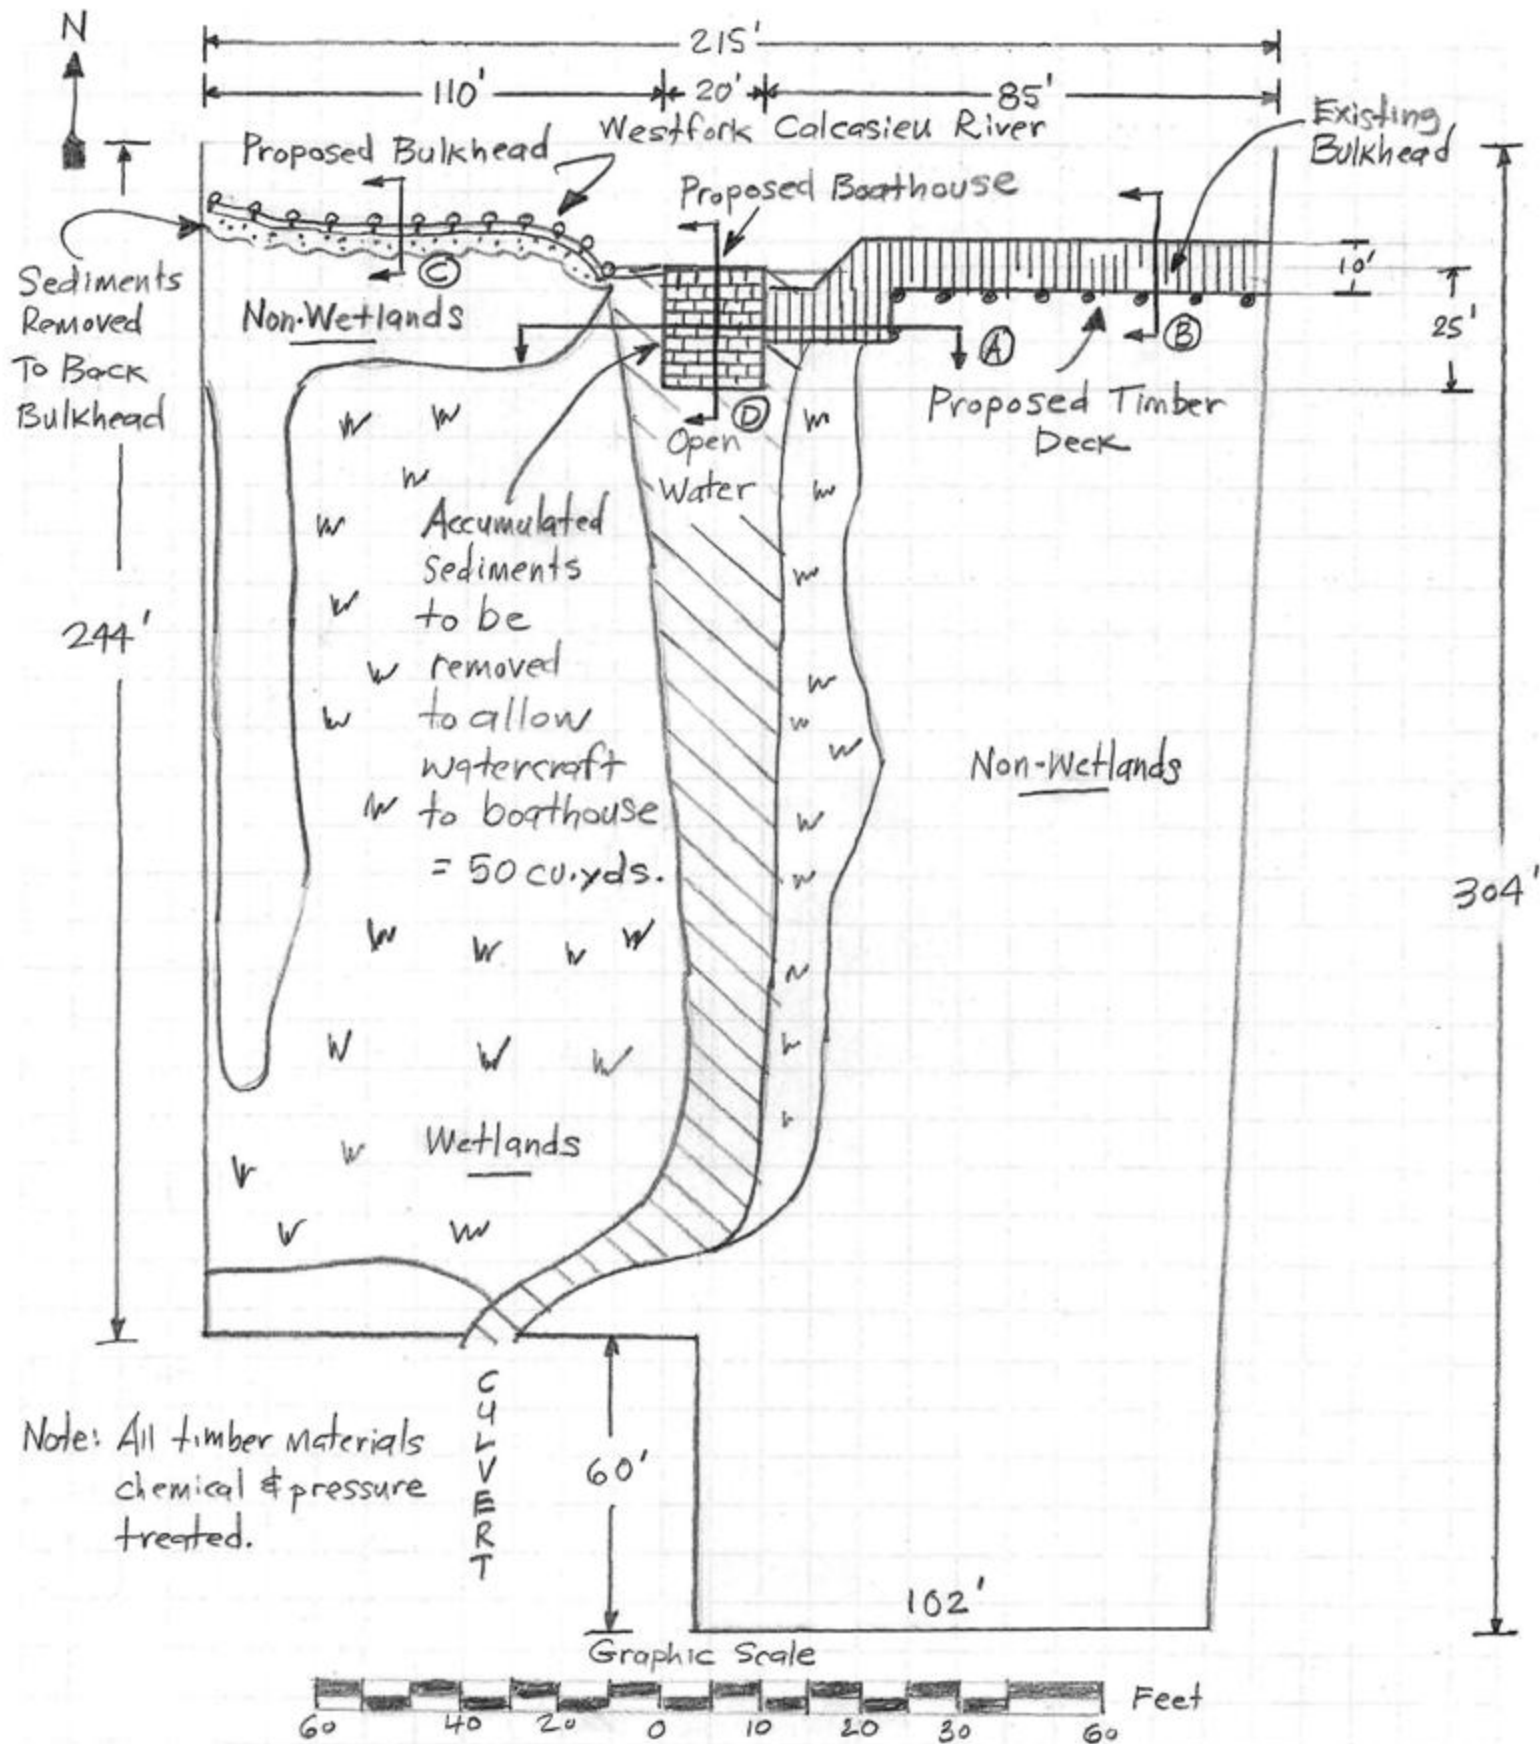 N
215'
110'
20'
85'
Westfork Calcasieu River
Existing
Bulkhead
Proposed Bulkhead
Proposed Boathouse
Sediments
Removed
To Back
Bulkhead
C
Non-Wetlands
10'
25'
A
B
D
Proposed Timber
Deck
Open
Water
Accumulated
Sediments
to be
removed
to allow
watercraft
to boathouse
= 50 cu.yds.
244'
Non-Wetlands
304'
Wetlands
CULVERT
60'
Note: All timber materials
chemical & pressure
treated.
102'
Graphic Scale
Feet
60 40 20 0 10 20 30 60